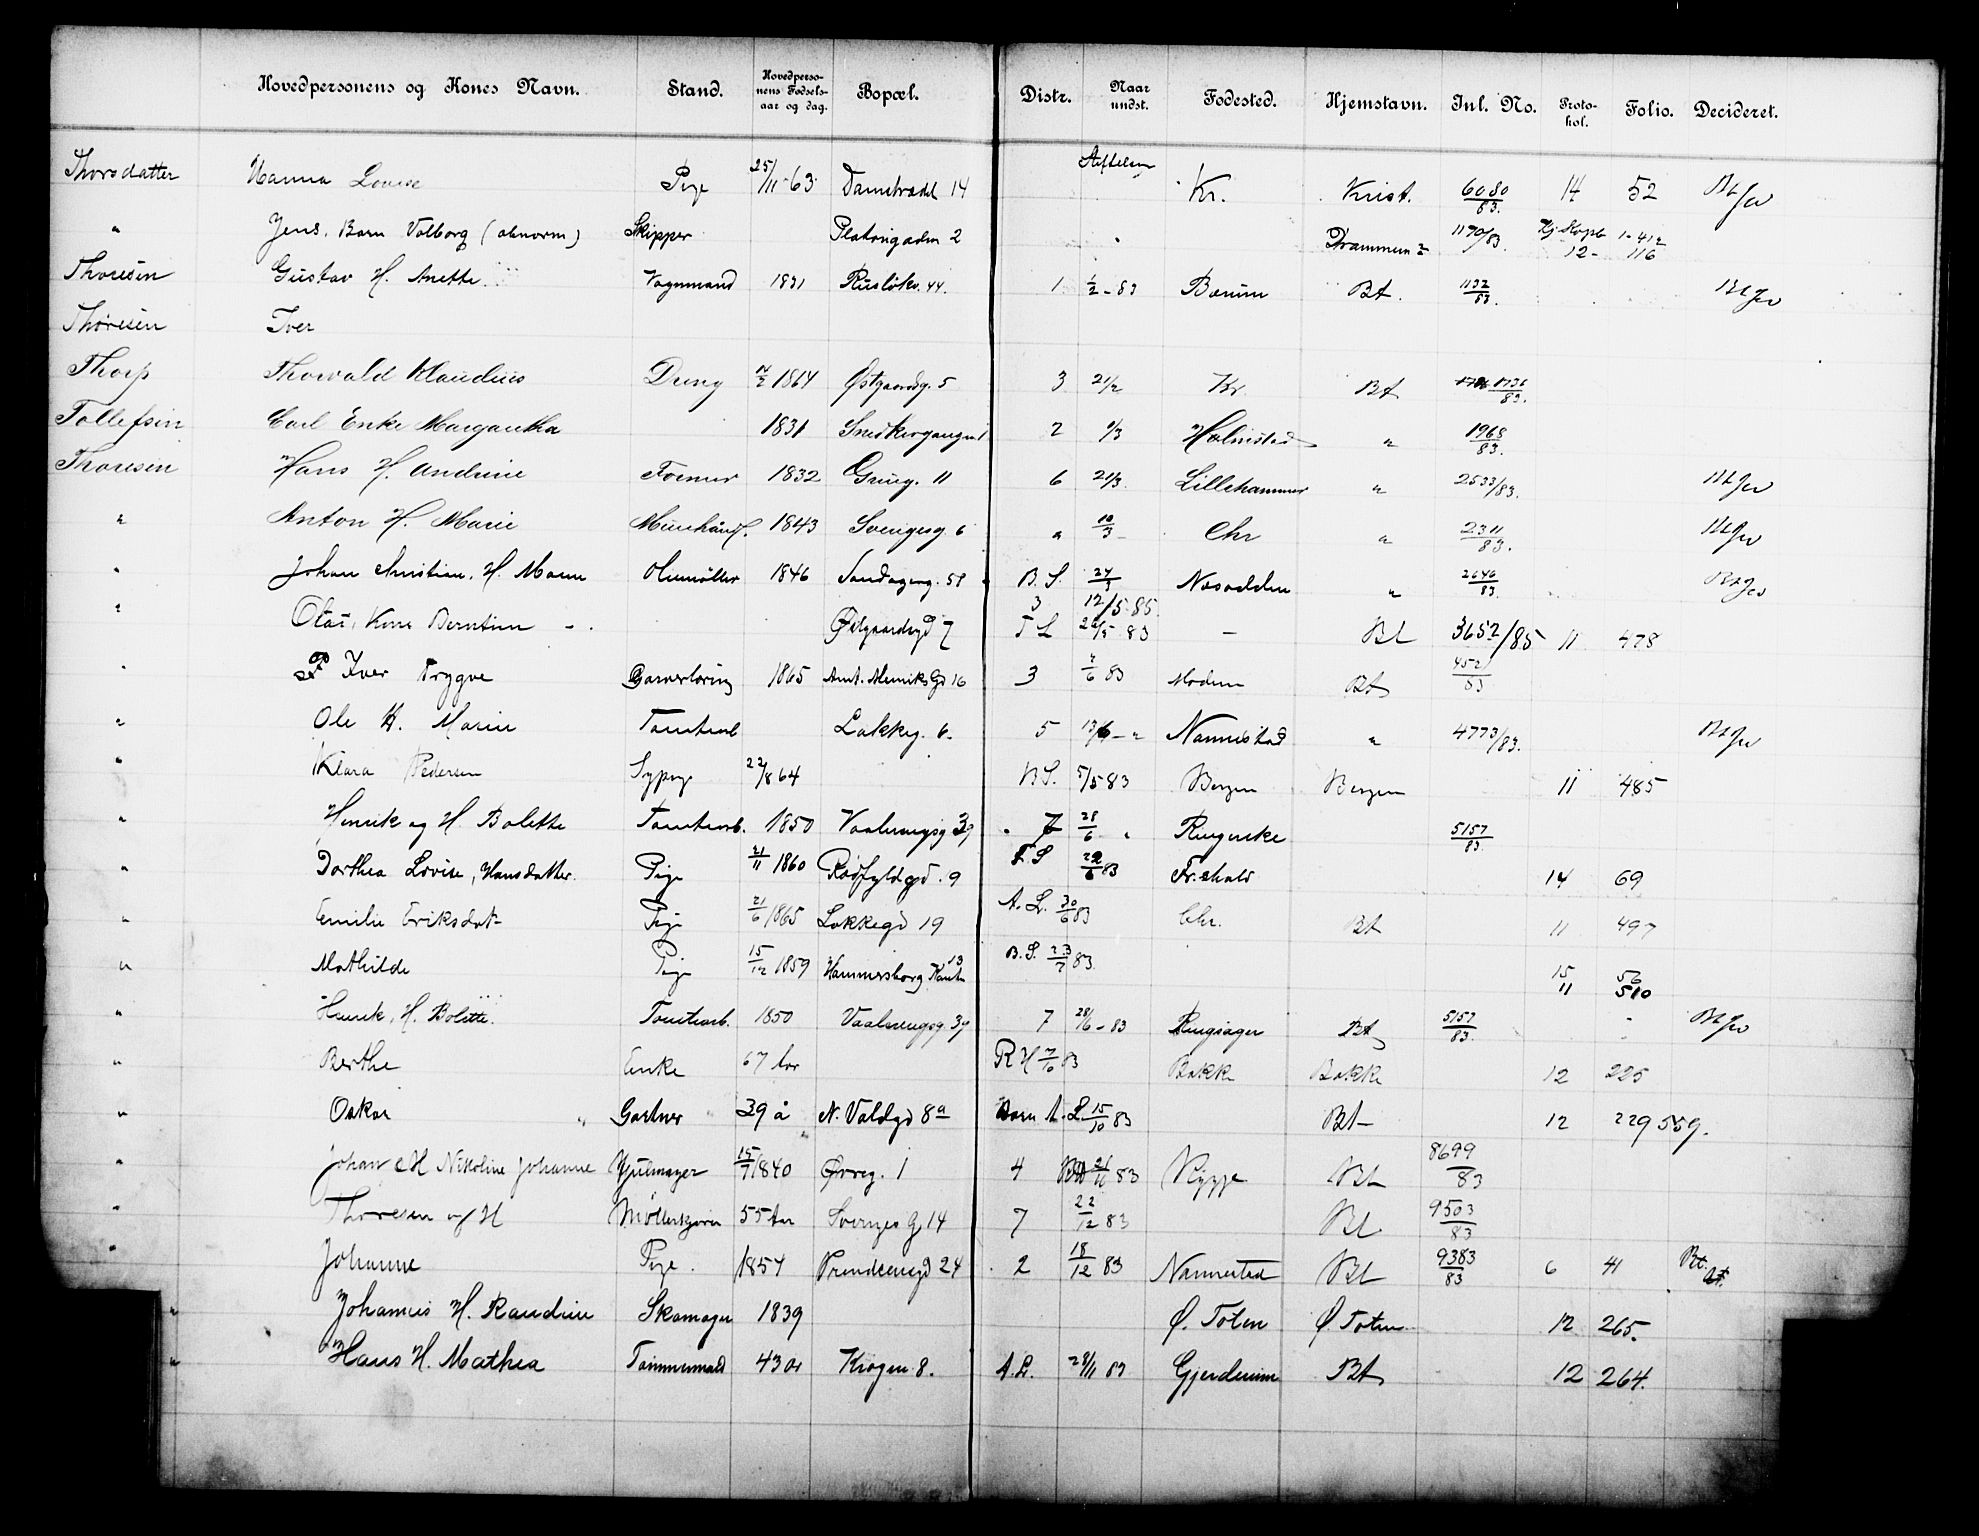 Hovedpersonens og Kones Navn. Stand. Hovedpersonens Fødselsaar og dag. Bopæl. Distr. Naar undst. Fødested. Hjemstavn. Inl. No. Protokol. Folio. Decideret.
Thorsdatter Hanna Lovise Pige 25/11 63 Damstrædet 14 Stiftelsen Kr. Krist. 6080/83. 14 52
" Jens, Barn Valborg (abnorm) Skipper 2 Drammen 1170/83. 12- 1-412 116
Thoresen Gustav H. Anette Vognmand 1831 Ruseløkv. 44. 1 1/2-83 Bærum Bt. 1132/83.
Thoresen Iver
Thorp Thorvald Klaudius Dreng 1864 Østgaardsg. 5 3 21/2 Kr. Bt 1736/83.
Tollefsen Carl Enke Margaretha 1831 2 9/3 Holmestad " 1968/83.
Thoresen Hans H. Andrine Former 1832 Grüng. 11 6 21/3. Lillehammer " 2533/83.
" Anton H. Marie Murhånd. 1843 Sverigesg. 6 " 10/3 - Chr " 2311/83.
" Johan Christian, H. Maren Oliemøller 1846 B. S. 24/3 Næsodden " 2646/83.
" Olai, Kone Berntine - Østgaardsgd 7 3 T L 12/5 85. 83 - Bt 3652/85 11 478
" Iver Trygve Garverlæring 1865 Amt. Meuriks Gd 16 3 7/6 83 Modum Bt 452/83
" Ole H. Marie Tomtearb Lakkeg. 6. 5 13/6 - " Nannestad " 4773/83.
" Klara Pedersen Sypige 22/8 64 B S. 5/5 83 Bergen Bergen 11 485
" Henrik og H. Bolette Tomtearb. 1850 Vaalerengsg 39 7 28/6 " Ringerike 5157/83.
" Dorthea Lovise, Hansdatter. Pige 21/11 1860 Rødfyldgd. 9 F. S 22/6 83 Fr.shald 14 69
" Emilie Eriksdat- Pige 21/6 1865 Lakkegd 19 A. L. 30/6 83 Chr. Bt 11 497
" Mathilde Pige 15/12 1859 Hammersborg 13 B. S. 23/7 83. 15 56 11 510
" Henrik, H. Bolette. Tomtearb. 1850 Vaalerengsg. 39 7 28/6-83 Ringsager Bt 5157/83.
" Berthe Enke 67 Aar R H 7/6 83 Bakke Bakke 12 225
" Oskar " Gartner 39 å N. Voldgd 8a Barn A. L. 15/10 83 Bt- 12 229 559.
" Johan M Nikoline Johanne Hjulmager 15/7 1840 Ørreg. 1 4 21/11 83 Rygge Bt 8699/83
" Thoresen og H Møllersvend 55 Aar Sverges G 14 7 22/12 83 Bt 9503/83
" Johanne Pige. 1857 24 2 18/12 83 Nannestad Bt 9383/83 6 41 Bt.
" Johannes H. Randine Skomager 1839 Ø. Toten Ø. Toten 12 265.
" Hans H. Mathea Tømmermand 43 Aar Krogen 8. A. L. 28/11 83 Gjerdrum Bt 12 264.